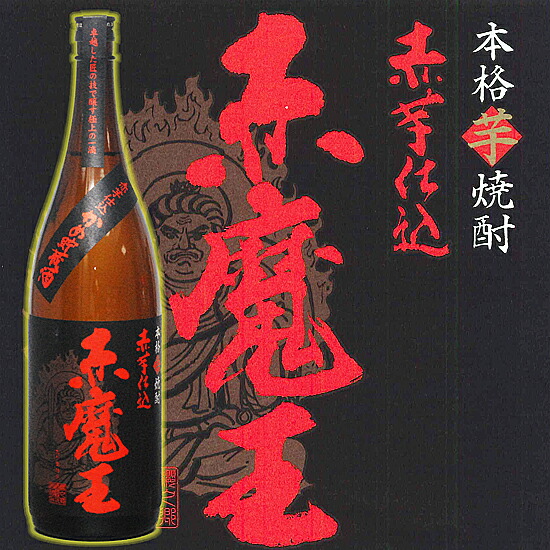 本格芋焼酎
赤芋仕込
赤魔王
卓越した匠の技で醸す極上の一滴
かめ貯蔵酒
本格芋焼酎
赤芋仕込
赤魔王